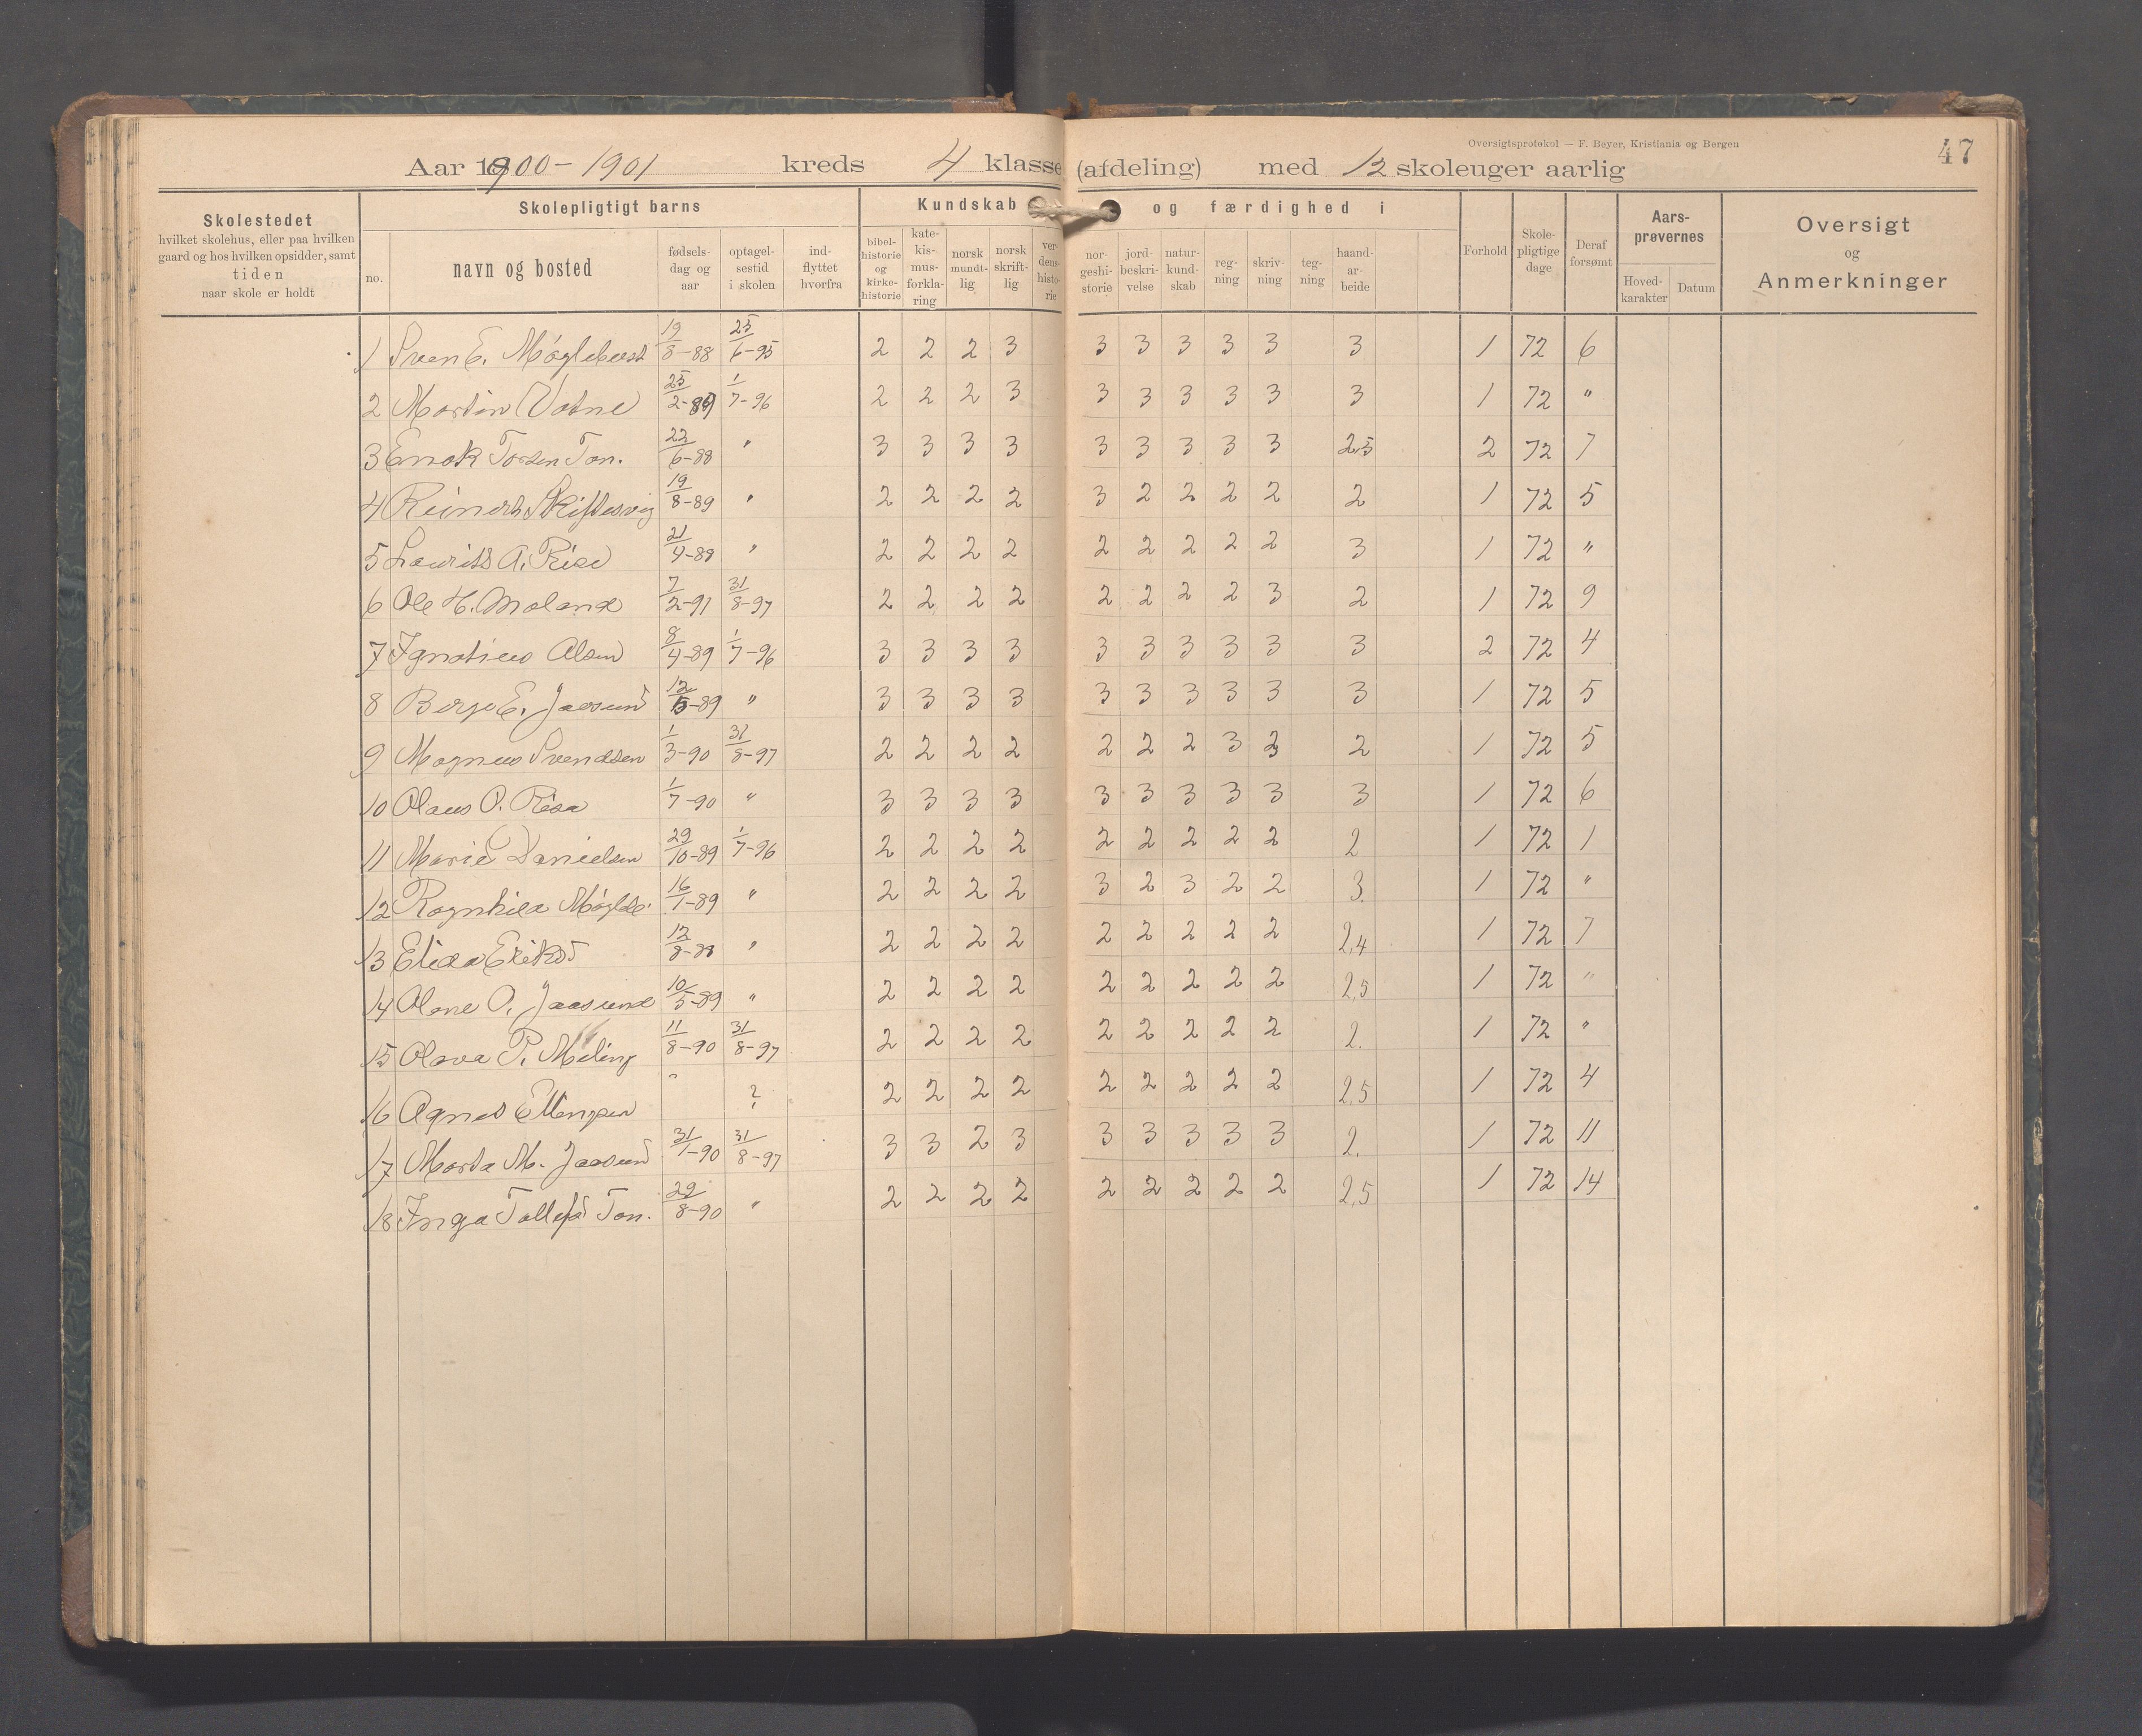 Oversigtsprotokol — F. Beyer, Kristiania og Bergen
47
Aar 1900-1901 kreds 4 klasse (afdeling) med 12 skoleuger aarlig
Skolestedet hvilket skolehus, eller paa hvilken gaard og hos hvilken opsidder, samt tiden naar skole er holdt
Skolepligtigt barns
no. navn og bosted fødsels-dag og aar optagel-sestid i skolen ind-flyttet hvorfra
Kundskab og færdighed i
bibel-historie og kirke-historie kate-kis-mus-forkla-ring norsk mundt-lig norsk skrift-lig ver-dens-histo-rie nor-geshi-storie jord-beskri-velse natur-kund-skab reg-ning skriv-ning teg-ning haand-ar-beide
Forhold Skole-pligtige dage Deraf forsømt
Aars-prøvernes Hoved-karakter Datum
Oversigt og Anmerkninger
1 Sven E. Møglebust 19/8-88 25/6-95 2 2 2 3 3 3 3 3 3 3 1 72 6
2 Martin Votne 25/2-89 1/7-96 2 2 2 3 3 3 3 3 3 3 1 72 "
3 Enok Torsen Tan. 22/6-88 " 3 3 3 3 3 3 3 3 3 2,5 2 72 7
4 Reinert Skiftesvig 19/8-89 " 2 2 2 2 3 2 2 2 2 2 1 72 5
5 Laurits A. Risa 21/4-89 " 2 2 2 2 2 2 2 2 2 3 1 72 "
6 Ole H. Moland 7/2-91 31/8-97 2 2 2 2 2 2 2 2 3 2 1 72 9
7 Ignatius Olsen 8/4-89 1/7-96 3 3 3 3 3 3 3 3 3 3 2 72 4
8 Berje E. Jaasund 12/5-89 " 3 3 3 3 3 3 3 3 3 3 1 72 5
9 Magnus Svendsen 1/3-90 31/8-97 2 2 2 2 2 2 2 3 2 2 1 72 5
10 Olaus O. Risa 1/7-90 " 3 3 3 3 3 3 3 3 3 3 1 72 6
11 Marie Danielsen 29/10-89 1/7-96 2 2 2 2 2 2 2 2 2 2 1 72 1
12 Ragnhild Møgleb. 16/1-89 " 2 2 2 2 3 2 3 2 2 3. 1 72 "
13 Elida Eriksd 12/8-88 " 2 2 2 2 2 2 2 2 2 2,4 1 72 7
14 Olane O. Jaasund 10/5-89 " 2 2 2 2 2 2 2 2 2 2,5 1 72 "
15 Olava P. Meling 11/8-90 31/8-97 2 2 2 2 2 2 2 2 2 2. 1 72 "
16 Agnes " ? 2 2 2 2 2 2 2 2 2 2,5 1 72 4
17 Marta M. Jaasund 31/1-90 31/8-97 3 3 2 3 3 3 3 3 3 2. 1 72 11
18 Inga Tollefsd Tan. 29/8-90 " 2 2 2 2 2 2 2 2 2 2,5 1 72 14